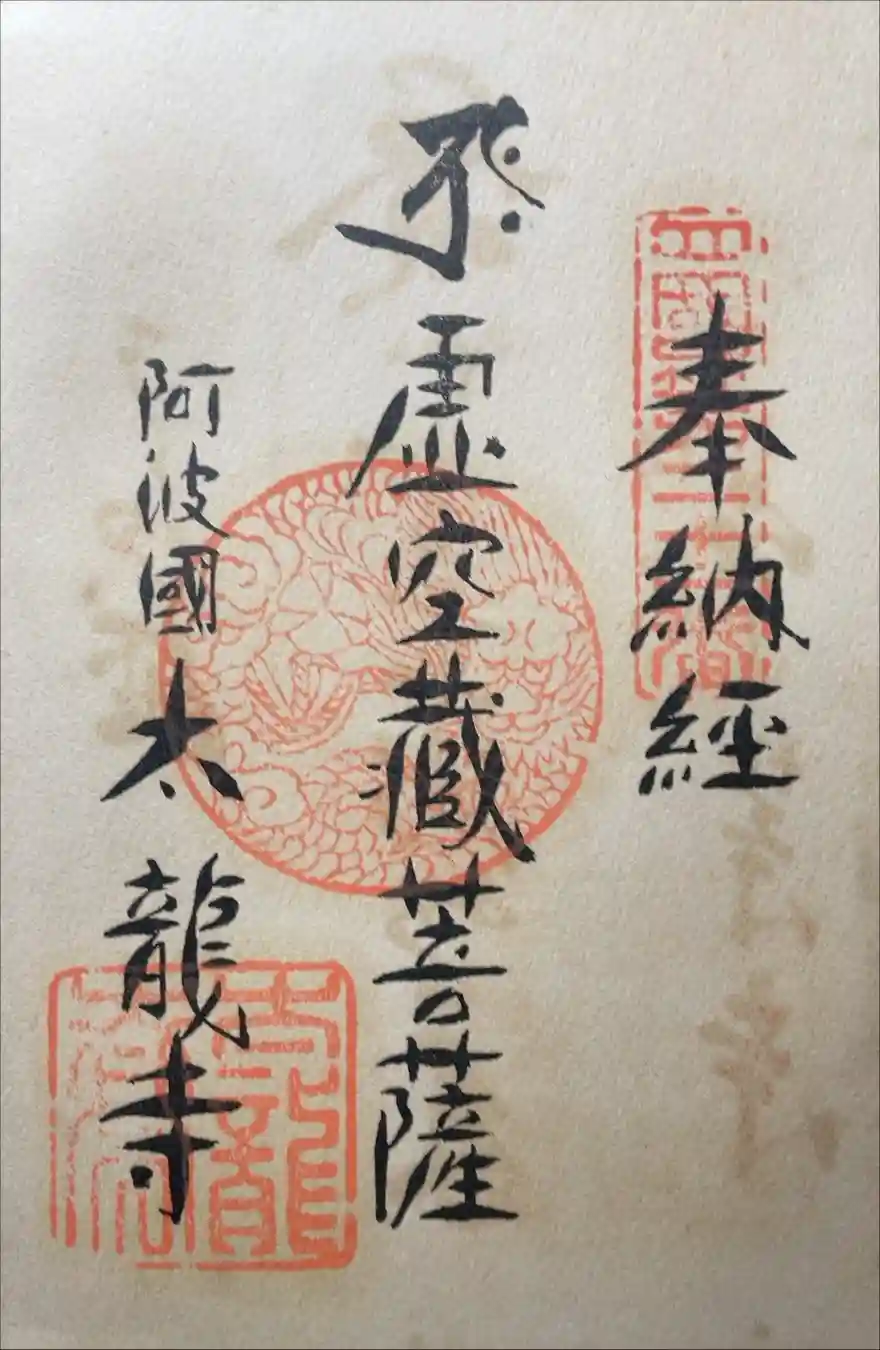 奉納經
虚空蔵菩薩
阿波國太龍寺